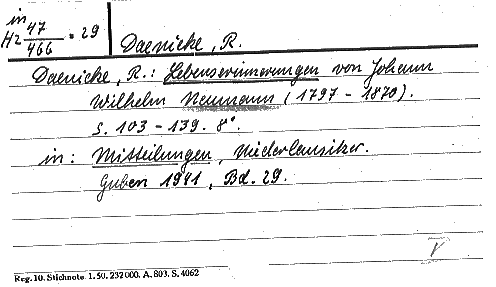 in
Hz 47/466 . 29
Daenicke, R.
Daenicke, R.: Lebenserinnerungen von Johann
Wilhelm Neumann (1797 - 1870).
S. 103 - 139. 8°.
in: Mitteilungen, Niederlausitzer.
Guben 1941, Bd. 29.
V
Reg. 10. Stichnote. 1. 50. 232000. A. 803. S. 4062